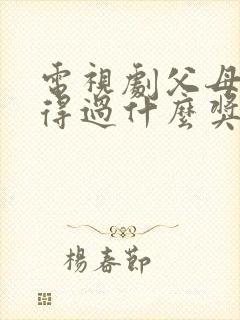 電視劇父母
得過什麼獎
楊春節